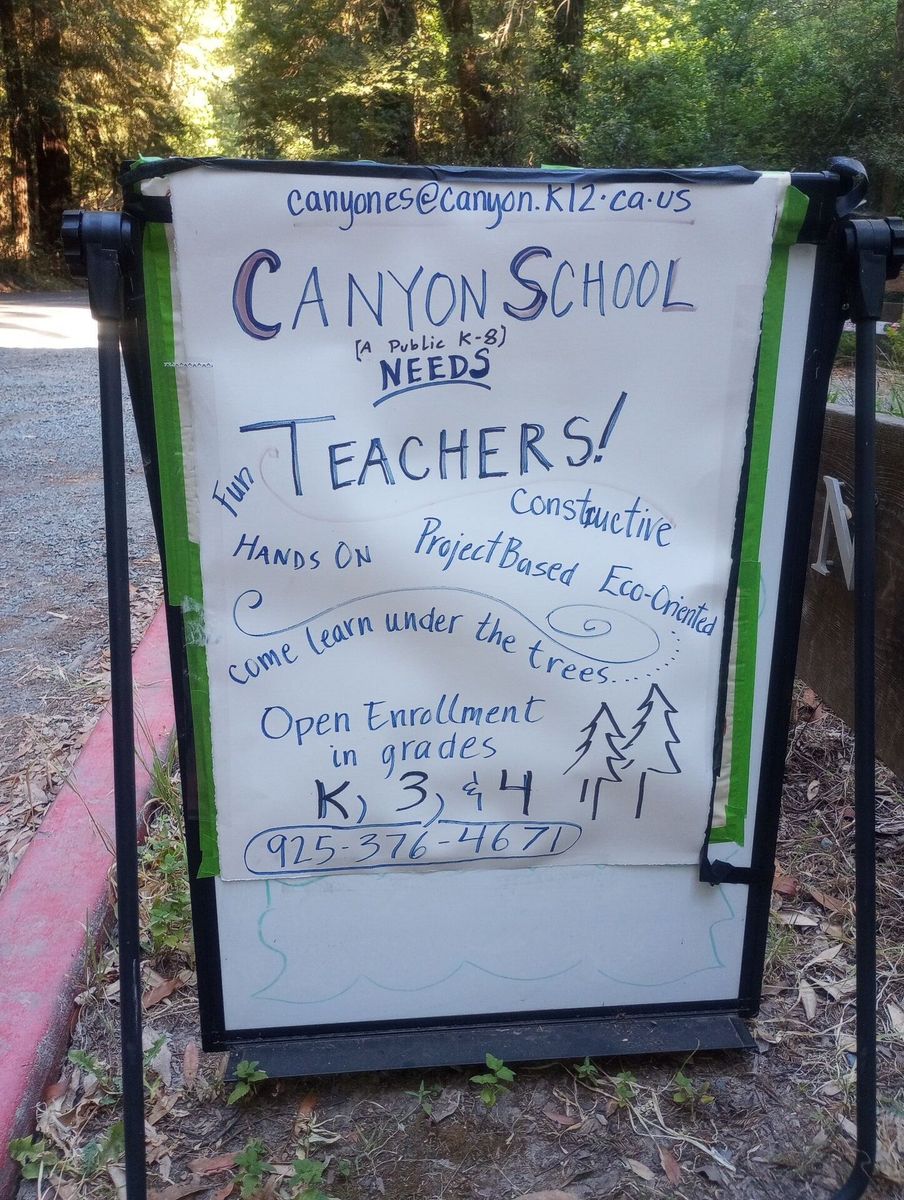 canyones@canyon.k12.ca.us
CANYON SCHOOL
[A Public K-8]
NEEDS
TEACHERS!
Fun
Constructive
HANDS ON
Project Based
Eco-Oriented
come learn under the trees......
Open Enrollment
in grades
K, 3, & 4
925-376-4671
N